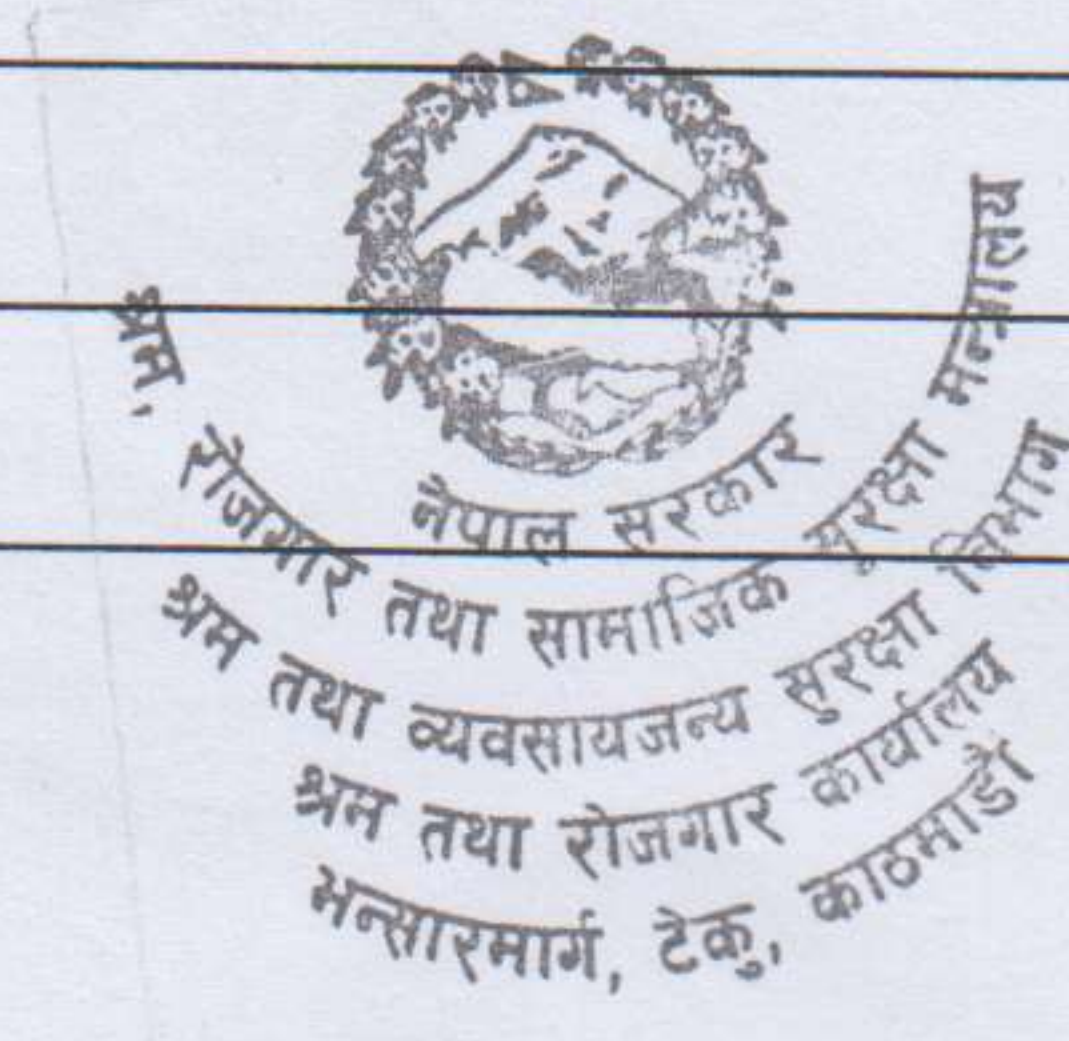 नेपाल सरकार
श्रम, रोजगार तथा सामाजिक सुरक्षा मन्त्रालय
श्रम तथा व्यवसायजन्य सुरक्षा विभाग
श्रम तथा रोजगार कार्यालय
भन्सारमार्ग, टेकु, काठमाडौं